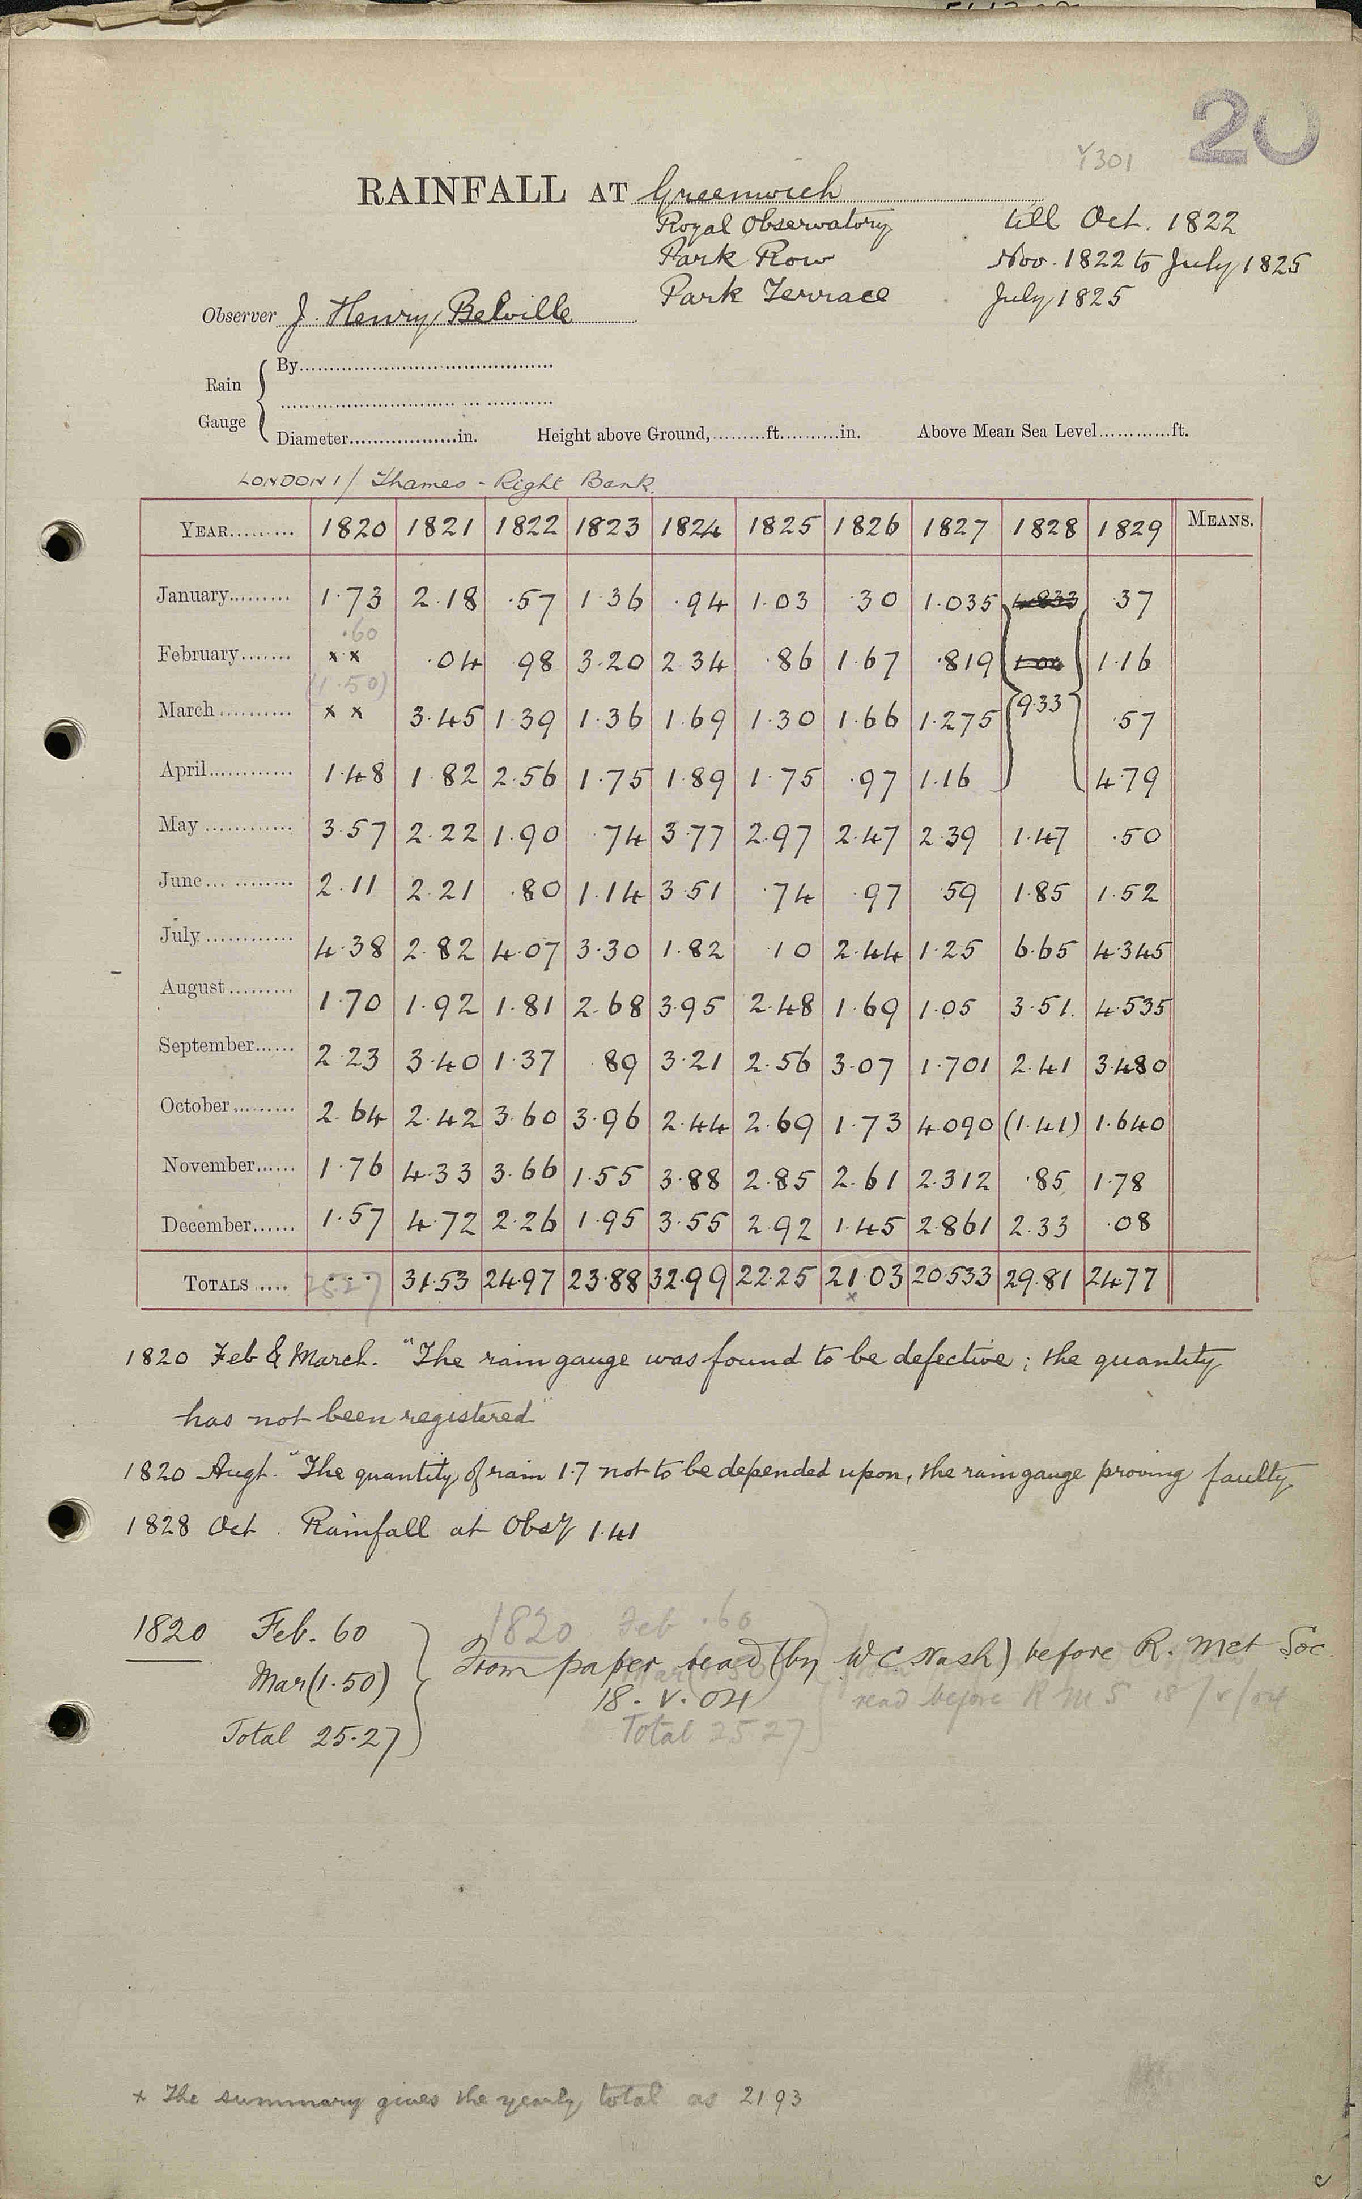 20
Y301
RAINFALL AT Greenwich
Royal Observatory till Oct. 1822
Park Row Nov. 1822 to July 1825
Park Terrace July 1825
Observer J. Henry Belville
Rain Gauge { By
Diameter in. Height above Ground, ft. in. Above Mean Sea Level ft.
LONDON 1 / Thames - Right Bank
YEAR 1820 1821 1822 1823 1824 1825 1826 1827 1828 1829 MEANS.
January 1.73 2.18 .57 1.36 .94 1.03 .30 1.035 .37
.60
February x x .04 .98 3.20 2.34 .86 1.67 .819 1.16
(1.50)
March x x 3.45 1.39 1.36 1.69 1.30 1.66 1.275 9.33 .57
April 1.48 1.82 2.56 1.75 1.89 1.75 .97 1.16 4.79
May 3.57 2.22 1.90 .74 3.77 2.97 2.47 2.39 1.47 .50
June 2.11 2.21 .80 1.14 3.51 .74 .97 .59 1.85 1.52
July 4.38 2.82 4.07 3.30 1.82 .10 2.44 1.25 6.65 4.345
August 1.70 1.92 1.81 2.68 3.95 2.48 1.69 1.05 3.51 4.535
September 2.23 3.40 1.37 .89 3.21 2.56 3.07 1.701 2.41 3.480
October 2.64 2.42 3.60 3.96 2.44 2.69 1.73 4.090 (1.41) 1.640
November 1.76 4.33 3.66 1.55 3.88 2.85 2.61 2.312 .85 1.78
December 1.57 4.72 2.26 1.95 3.55 2.92 1.45 2.861 2.33 .08
TOTALS 25.27 31.53 24.97 23.88 32.99 22.25 21.03 20.533 29.81 24.77
x
1820 Feb & March. "The rain gauge was found to be defective; the quantity
has not been registered"
1820 Augt. "The quantity of rain 1.7 not to be depended upon, the rain gauge proving faulty
1828 Oct. Rainfall at Obsy 1.41
1820 Feb .60
1820 Feb. 60
From paper read (by W C Nash) before R. Met Soc.
Mar (1.50)
18. V. 04
read before R M S 18/V/04
Total 25.27
Total 25 27
x The summary gives the yearly total as 21 93
c